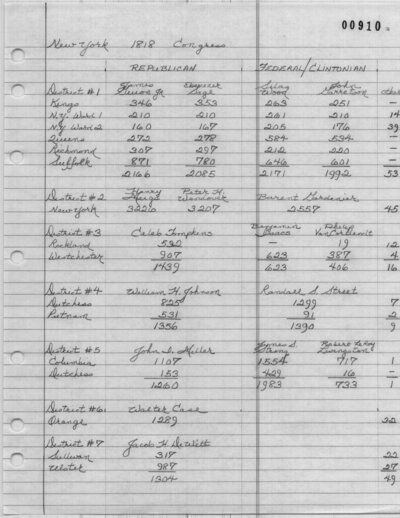 00910
New York 1818 Congress
REPUBLICAN FEDERAL/CLINTONIAN
District #1 James Guion Jr. Ebenezer Sage Silas Wood John Garretson othe
Kings 346 353 263 251 —
N.Y. Ward 1 210 210 261 210 14
N.Y. Ward 2 160 167 205 176 39
Queens 272 278 584 534 —
Richmond 307 297 212 220 —
Suffolk 871 780 646 601 —
2166 2085 2171 1992 53
District #2 Henry Meigs Peter H. Wendover Barent Gardenier
New York 3220 3207 2557 45
District #3 Caleb Tompkins Benjamin Isaacs Philip Van Cortlandt
Rockland 532 — 19 12
Westchester 907 623 387 4
1439 623 406 16
District #4 William H. Johnson Randall S. Street
Dutchess 825 1299 7
Putnam 531 91 2
1356 1390 9
District #5 John I. Miller James S. Strong Robert LeRoy Livingston
Columbia 1107 1554 717 1
Dutchess 153 429 16 —
1260 1983 733 1
District #6 Walter Case
Orange 1289 22
District #7 Jacob H. DeWitt
Sullivan 317 22
Ulster 987 27
1304 49